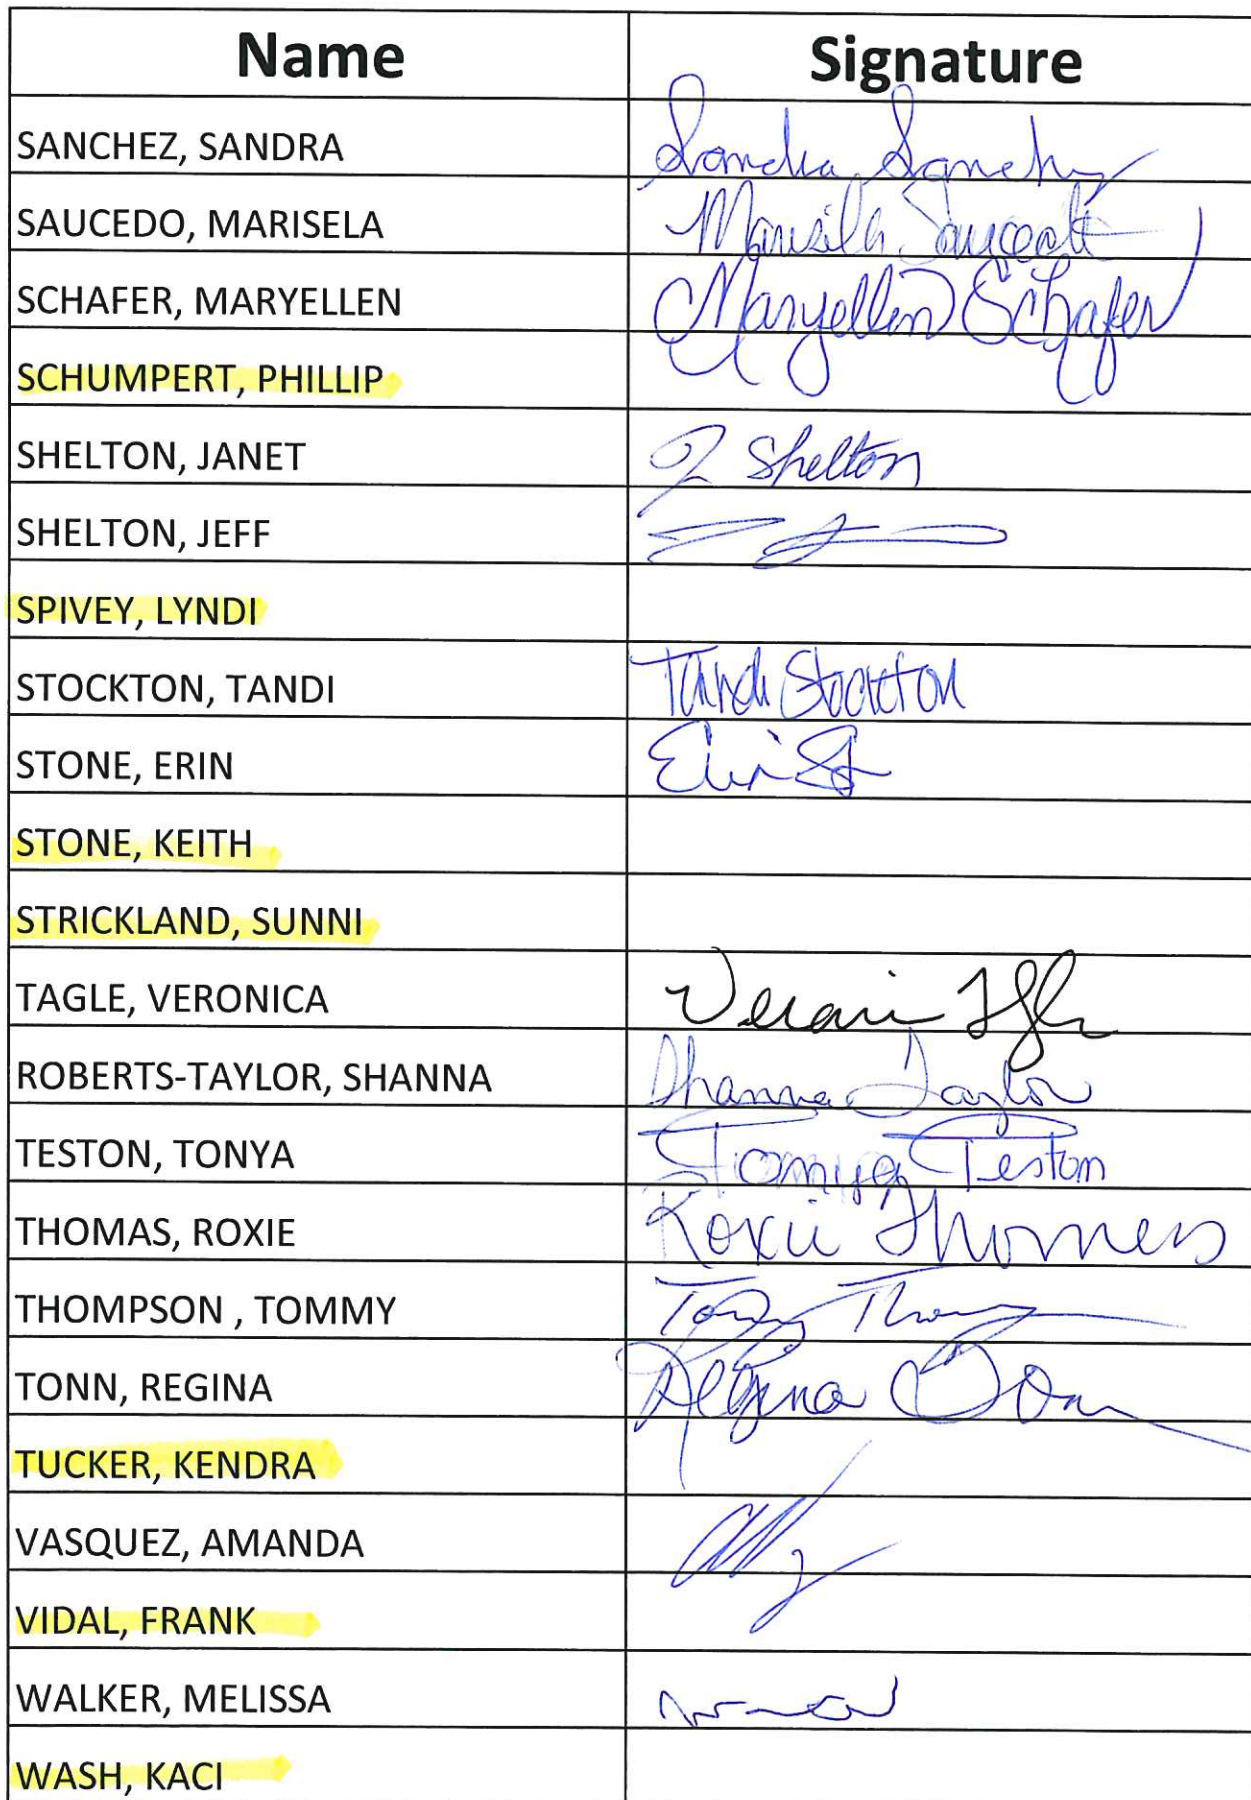 Name Signature
SANCHEZ, SANDRA Sandra Sanchez
SAUCEDO, MARISELA Marisela Saucedo
SCHAFER, MARYELLEN Maryellen Schafer
SCHUMPERT, PHILLIP
SHELTON, JANET J Shelton
SHELTON, JEFF
SPIVEY, LYNDI
STOCKTON, TANDI Tandi Stockton
STONE, ERIN Erin St
STONE, KEITH
STRICKLAND, SUNNI
TAGLE, VERONICA
ROBERTS-TAYLOR, SHANNA Shanna Taylor
TESTON, TONYA Tonya Teston
THOMAS, ROXIE Roxie Thomas
THOMPSON , TOMMY
TONN, REGINA Regina Tonn
TUCKER, KENDRA
VASQUEZ, AMANDA
VIDAL, FRANK
WALKER, MELISSA
WASH, KACI